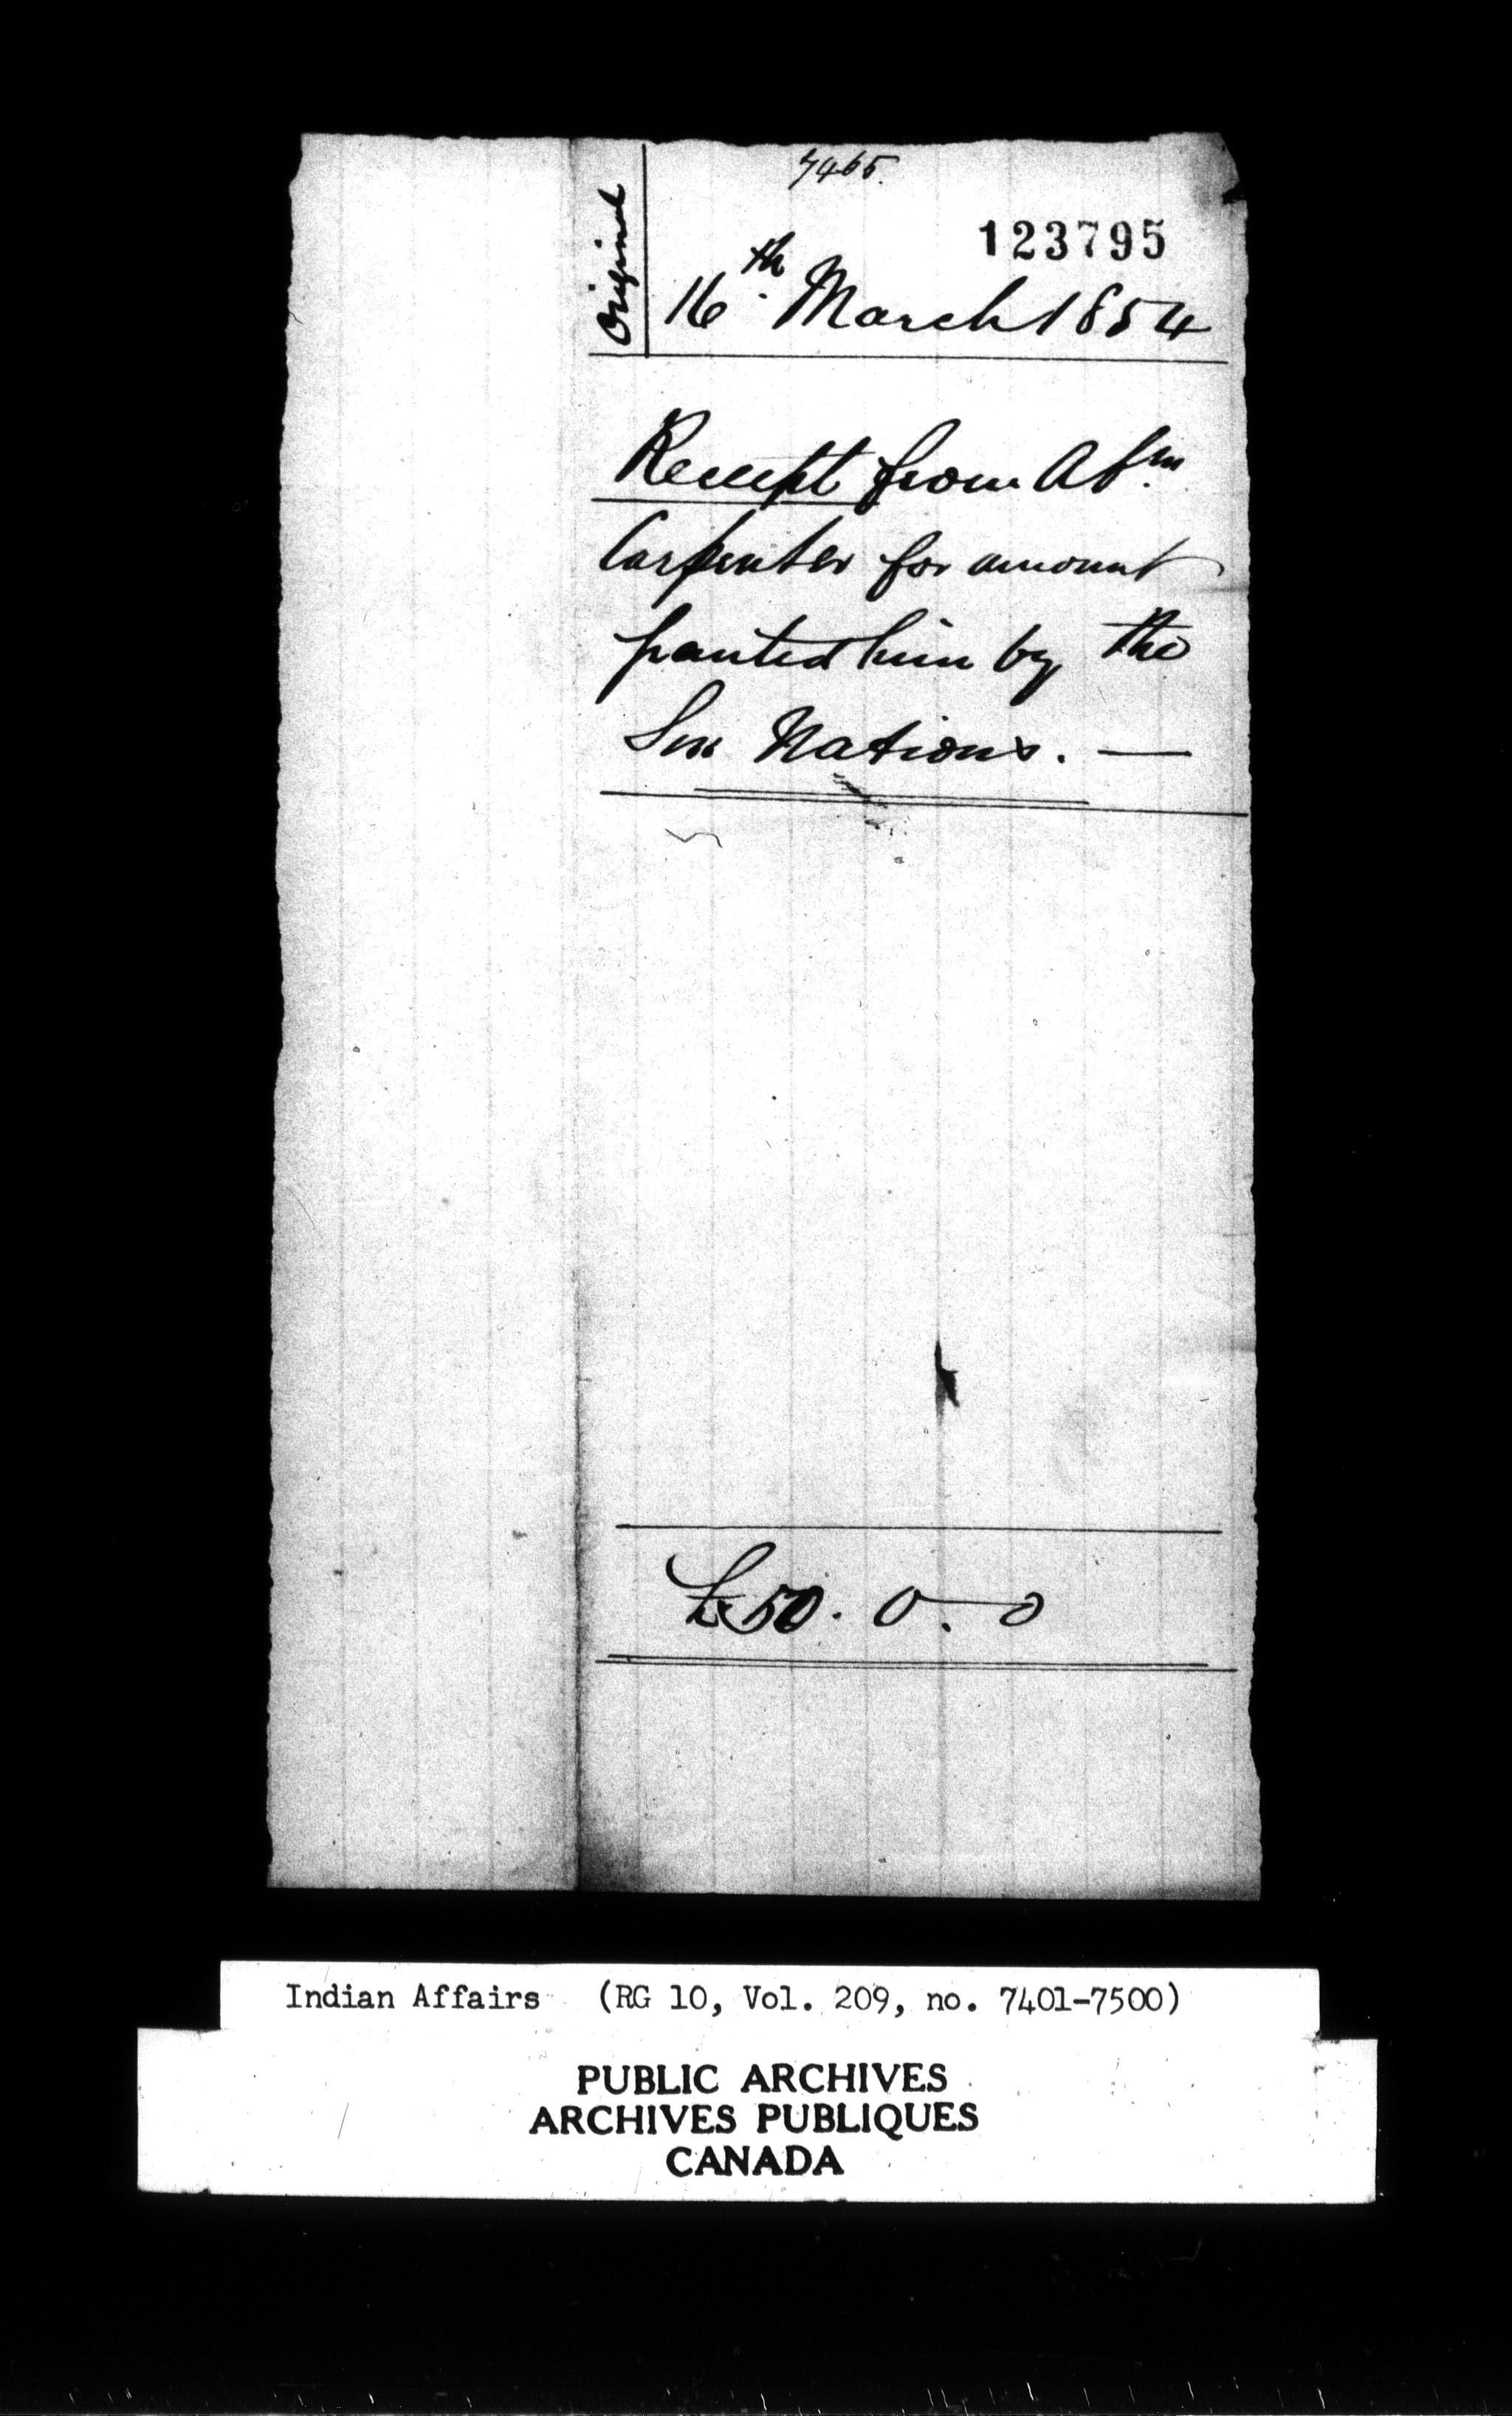 7465.
123795
Original
16th March 1854
Receipt from Abm
Carpenter for amount
granted him by the
Six Nations. —
£50. 0. 0
Indian Affairs (RG 10, Vol. 209, no. 7401-7500)
PUBLIC ARCHIVES
ARCHIVES PUBLIQUES
CANADA